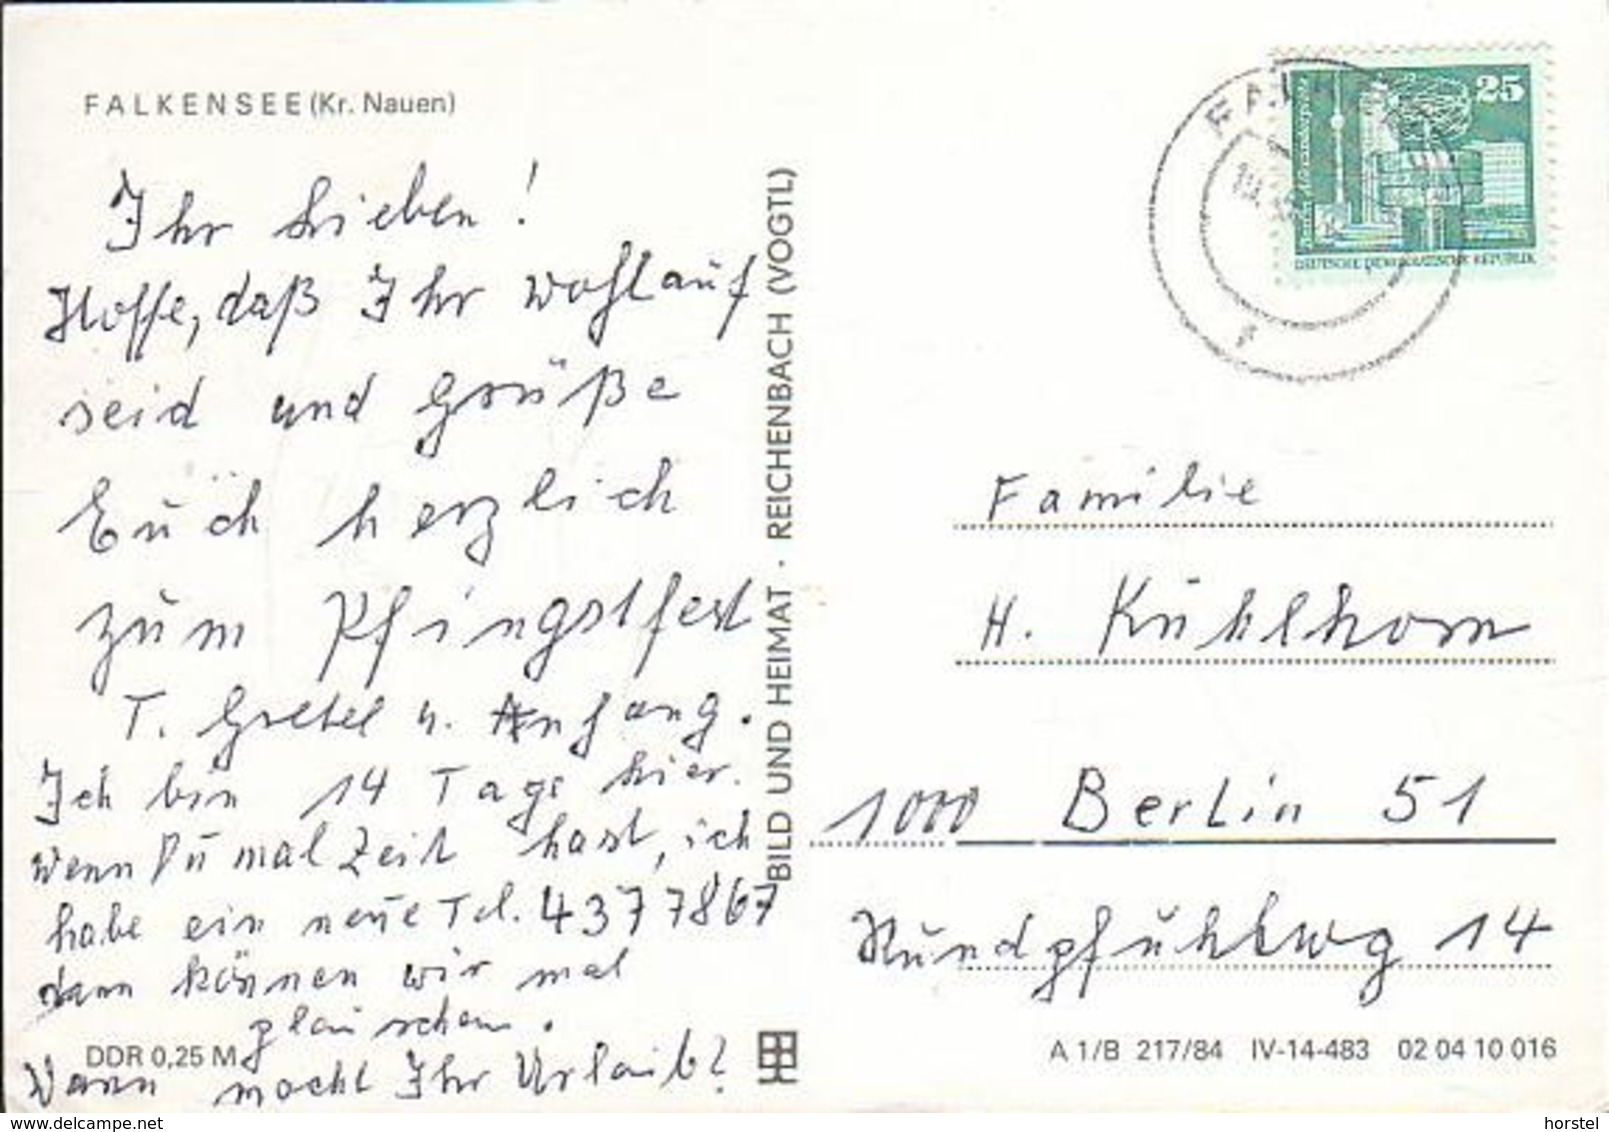 FALKENSEE (Kr. Nauen)
Ihr Lieben!
Hoffe, daß Ihr wohlauf
seid und Grüße
Euch herzlich
zum Pfingstfest
T. Gretel u. Anhang.
Ich bin 14 Tage hier.
Wenn Du mal Zeit hast, ich
habe ein neue Tel. 4377867
dann können wir mal
plauschen.
Wann macht Ihr Urlaub?
DDR 0,25 M
BILD UND HEIMAT · REICHENBACH (VOGTL)
25
DEUTSCHE DEMOKRATISCHE REPUBLIK
Familie
H. Kühlhorn
1000 Berlin 51
Hundpfuhlwg 14
A 1/B 217/84 IV-14-483 02 04 10 016
www.delcampe.net
horstel